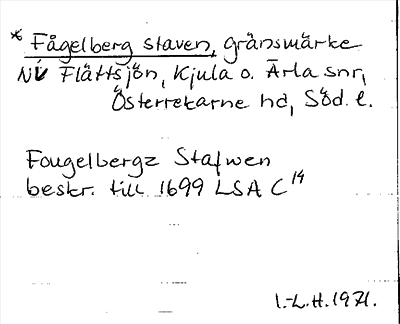 * Fågelberg staven, gränsmärke
NV Flättsjön, Kjula o. Ärla snr,
Österrekarne hd, Söd. l.
Fougelbergz Stafwen
beskr. till 1699 LSA C 14
I.-L.H. 1971.